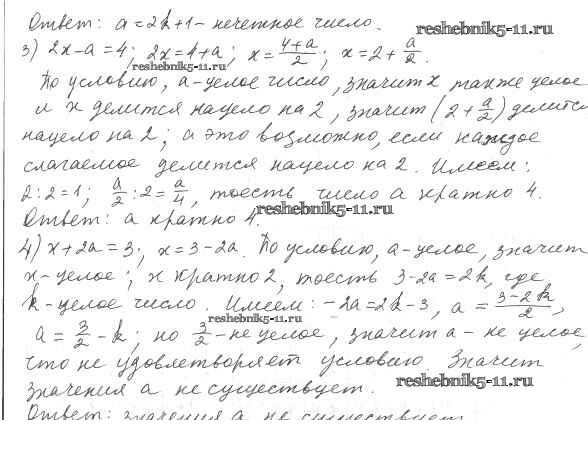 Ответ: a = 2k+1 - нечетное число.
reshebnik5-11.ru
3) 2x-a=4; 2x=4+a; x=\frac{4+a}{2}; x=2+\frac{a}{2}.
reshebnik5-11.ru
По условию, a-целое число, значит x также целое
и x делится нацело на 2, значит (2+\frac{a}{2}) делится
нацело на 2; а это возможно, если каждое
слагаемое делится нацело на 2. Имеем:
2:2=1; \frac{a}{2}:2=\frac{a}{4}, тоесть число a кратно 4.
Ответ: a кратно 4.
reshebnik5-11.ru
4) x+2a=3; x=3-2a. По условию, a-целое, значит
x-целое; x кратно 2, тоесть 3-2a=2k, где
k-целое число. Имеем: -2a=2k-3, a=\frac{3-2k}{2},
reshebnik5-11.ru
a=\frac{3}{2}-k; но \frac{3}{2}-не целое, значит a-не целое,
что не удовлетворяет условию Значит
значения a не существует.
reshebnik5-11.ru
Ответ: значения a не существует